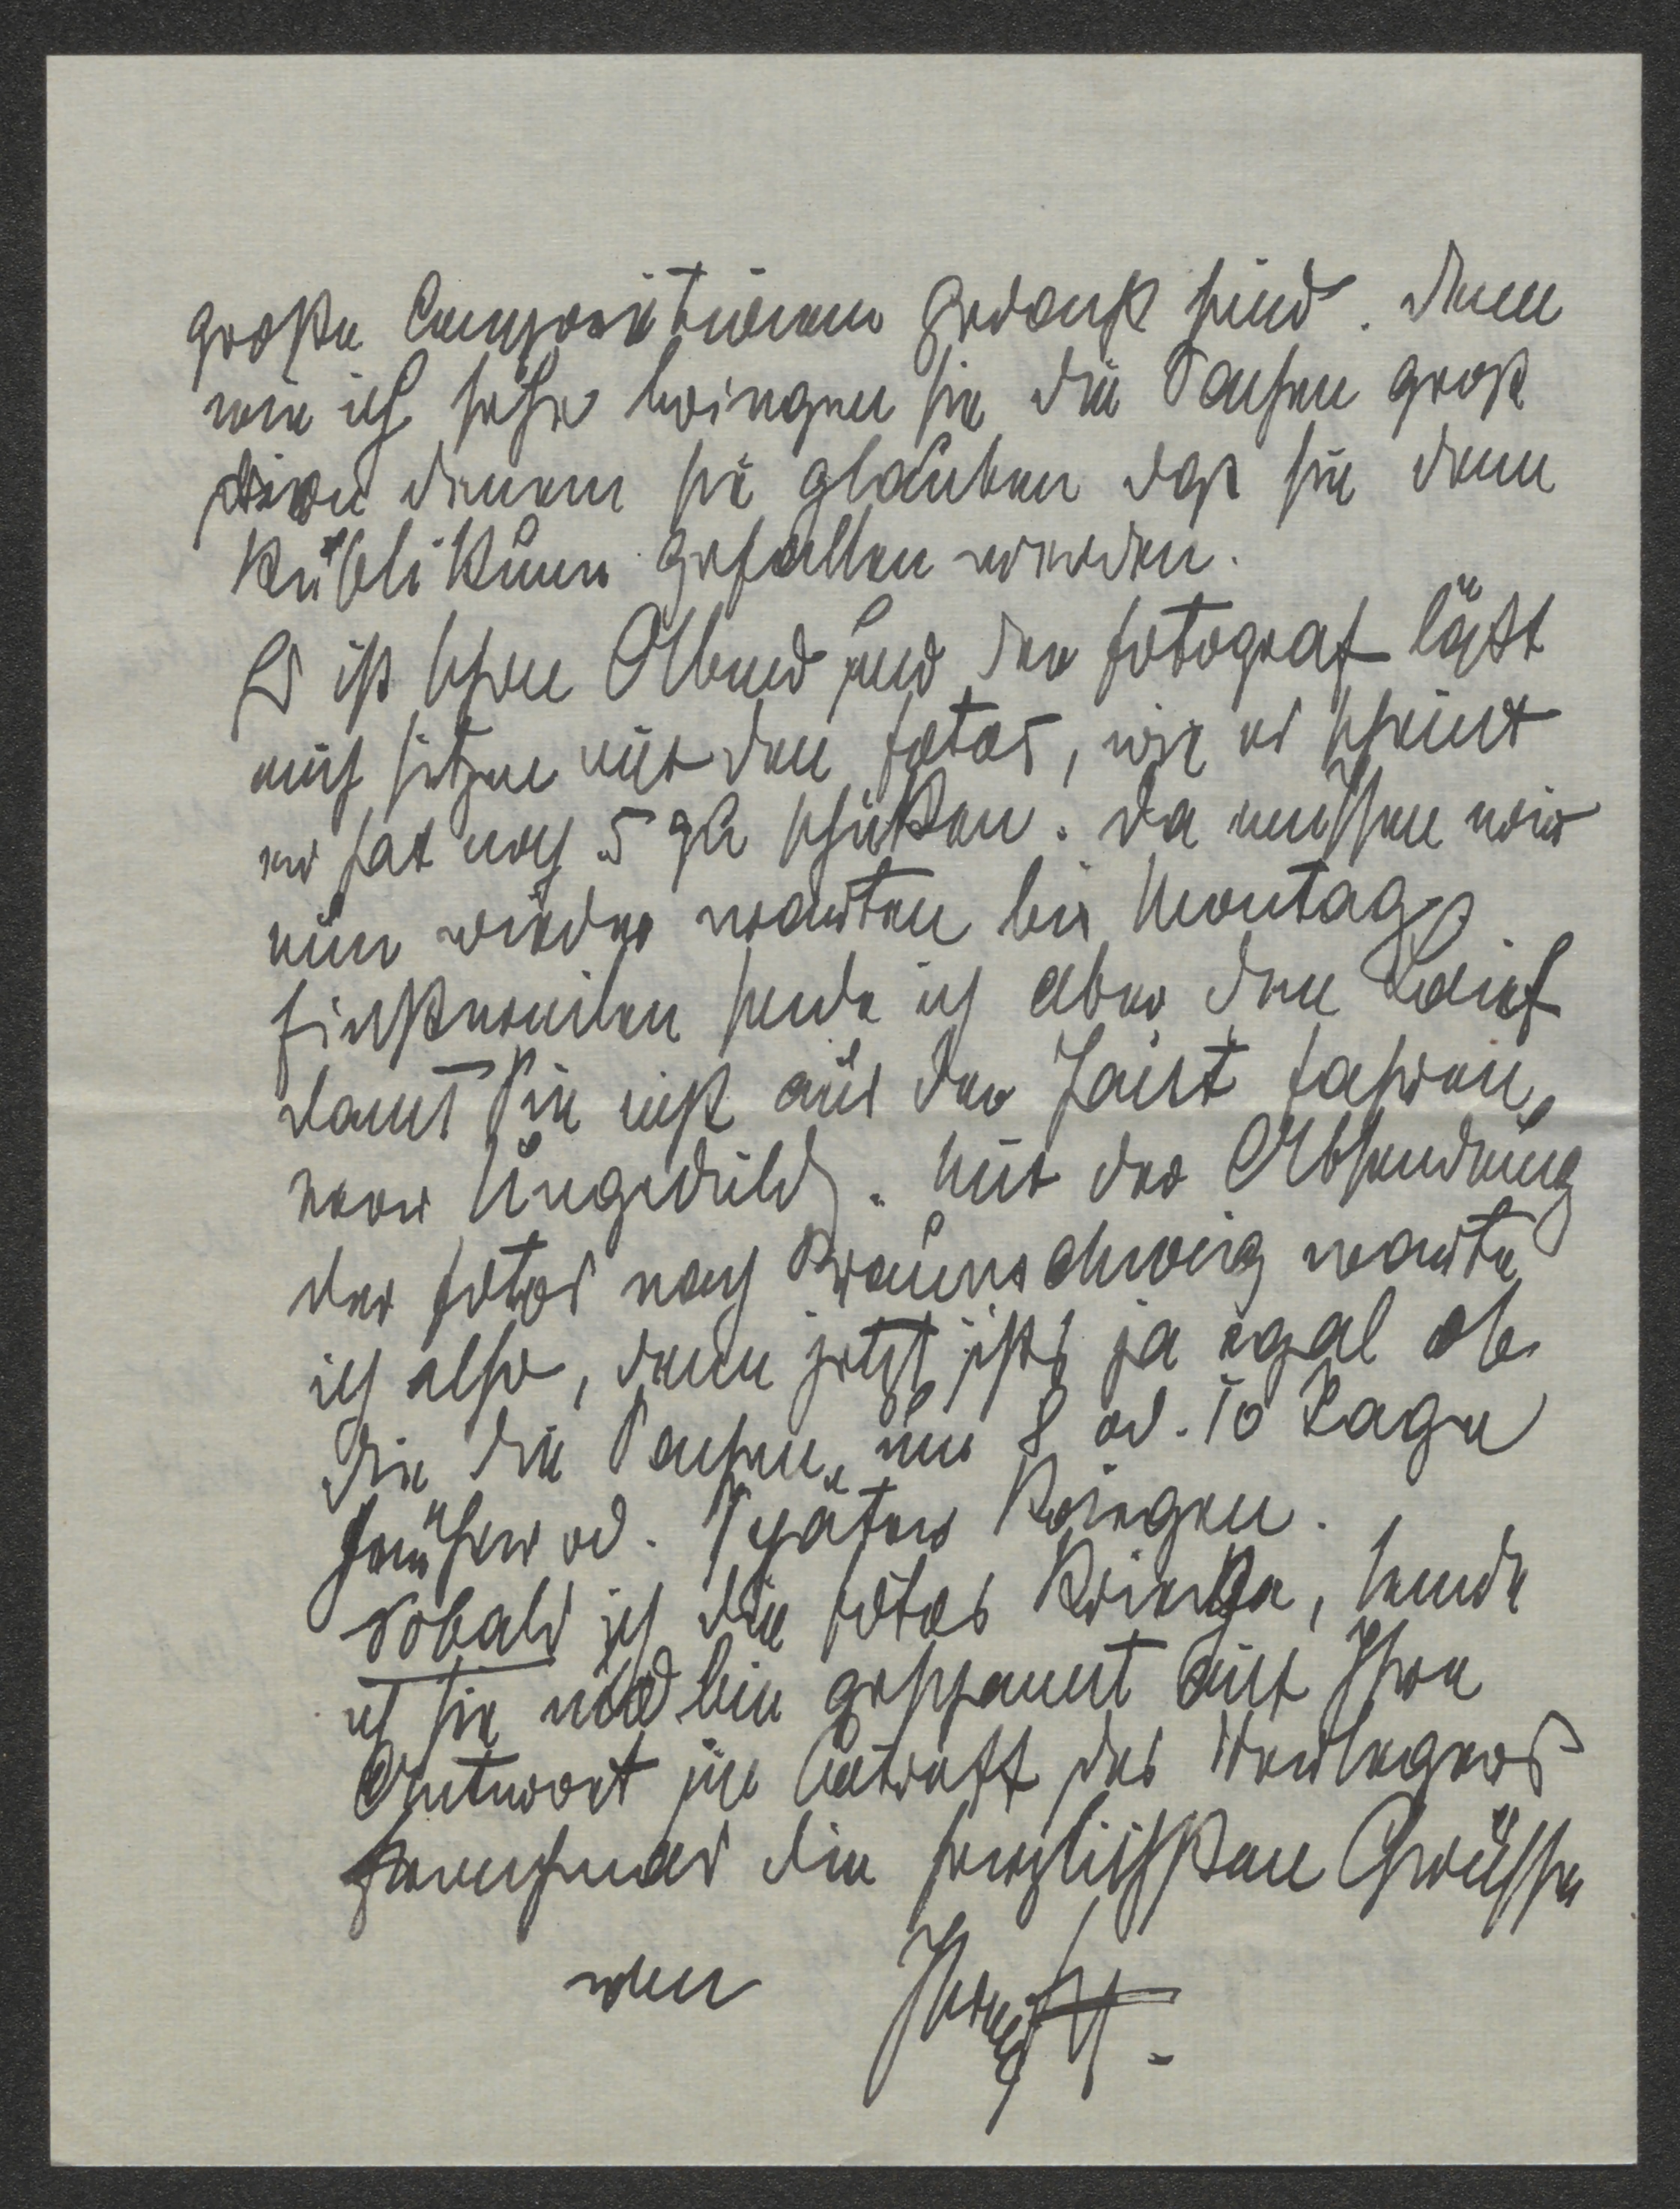 große Compositionen gedacht sind. Denn
wie ich sehe bringen sie die Sachen groß
von denen sie glauben daß sie dem
Publikum gefallen werden.
Es ist schon Abend und der fotograf läßt
mich sitzen mit den fotos, wie es scheint
er hat noch 5 zu schicken. Da müssen wir
nun wieder warten bis Montag.
Einstweilen sende ich aber den Brief
damit Sie nicht aus der Haut fahren,
vor Ungeduld. Mit der Absendung
der fotos nach Braunschweig warte
ich also, denn jetzt ists ja egal ob
die die Sachen um 8 od. 10 Tage
früher od. Später kriegen.
Sobald ich die fotos kriege, sende
ich sie und bin gespannt auf Ihre
Antwort in betreff des Verlegers
die herzlichsten Grüsse
von Ihrem